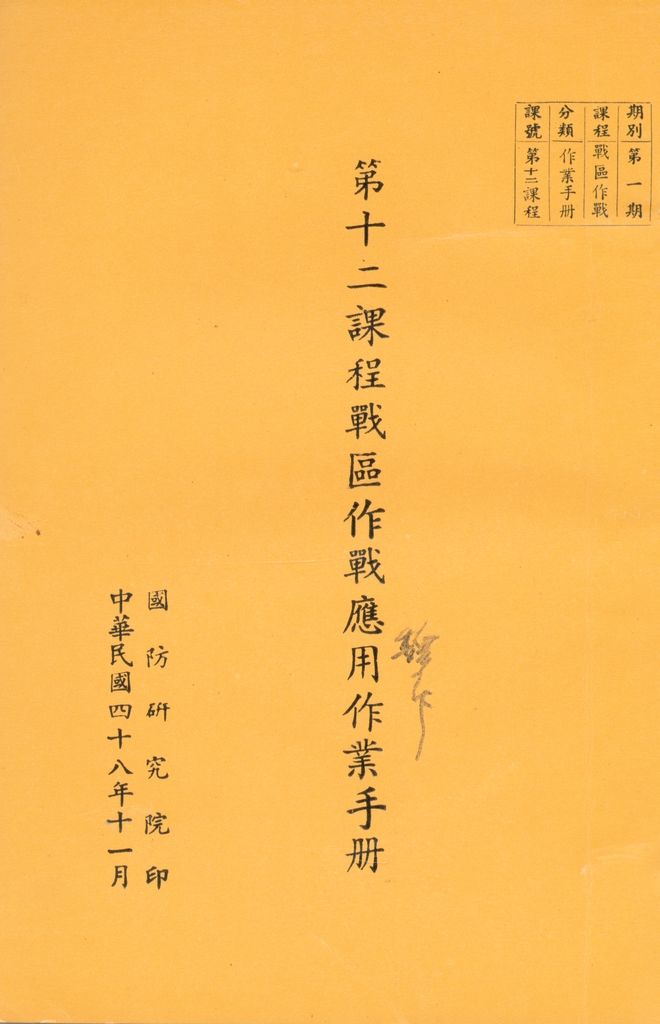 期別 第一期
課程 戰區作戰
分類 作業手册
課號 第十二課程
第十二課程戰區作戰應用作業手册
國防研究院印
中華民國四十八年十一月